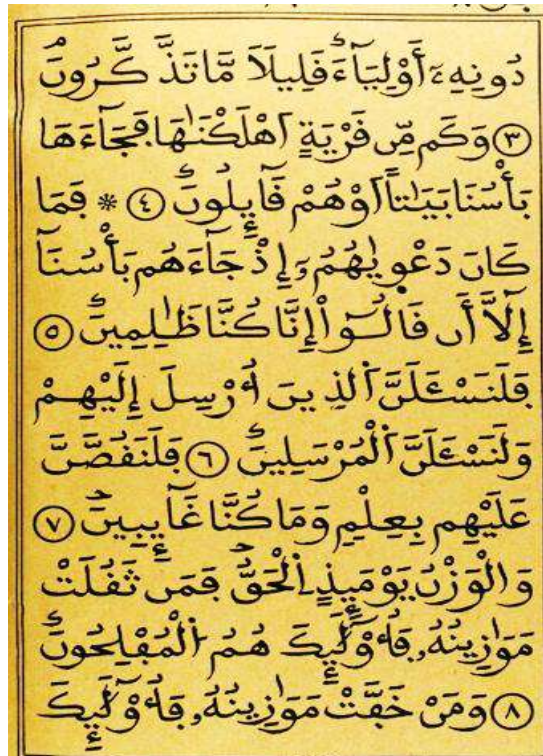 دُونِهِۦٓ أَوْلِيَآءَۖ قَلِيلَا مَّا تَذَّكَّرُونَۖ
٣ وَكَم مِّن قَرْيَةٍ اَهْلَكْنَٰهَا فَجَآءَهَا
بَأْسُنَا بَيَٰتاً اَوْ هُمْ قَآئِلُونَۖ ٤ * فَمَا
كَانَ دَعْوٜيٰهُمُۥٓ إِذْ جَآءَهُم بَأْسُنَآ
إِلَّآ أَن قَالُوٓاْ إِنَّا كُنَّا ظَٰلِمِينَۖ ٥
فَلَنَسْـَٔلَنَّ اَ۬لذِينَ أُرْسِلَ إِلَيْهِمْ
وَلَنَسْـَٔلَنَّ اَ۬لْمُرْسَلِينَۖ ٦ فَلَنَقُصَّنَّ
عَلَيْهِم بِعِلْمٖ وَمَا كُنَّا غَآئِبِينَۖ ٧
وَالْوَزْنُ يَوْمَئِذٍ اِ۬لْحَقُّۖ فَمَن ثَقُلَتْ
مَوَٰزِينُهُۥ فَأُوْلَٰٓئِكَ هُمُ اُ۬لْمُفْلِحُونَۖ
٨ وَمَنْ خَفَّتْ مَوَٰزِينُهُۥ فَأُوْلَٰٓئِكَ